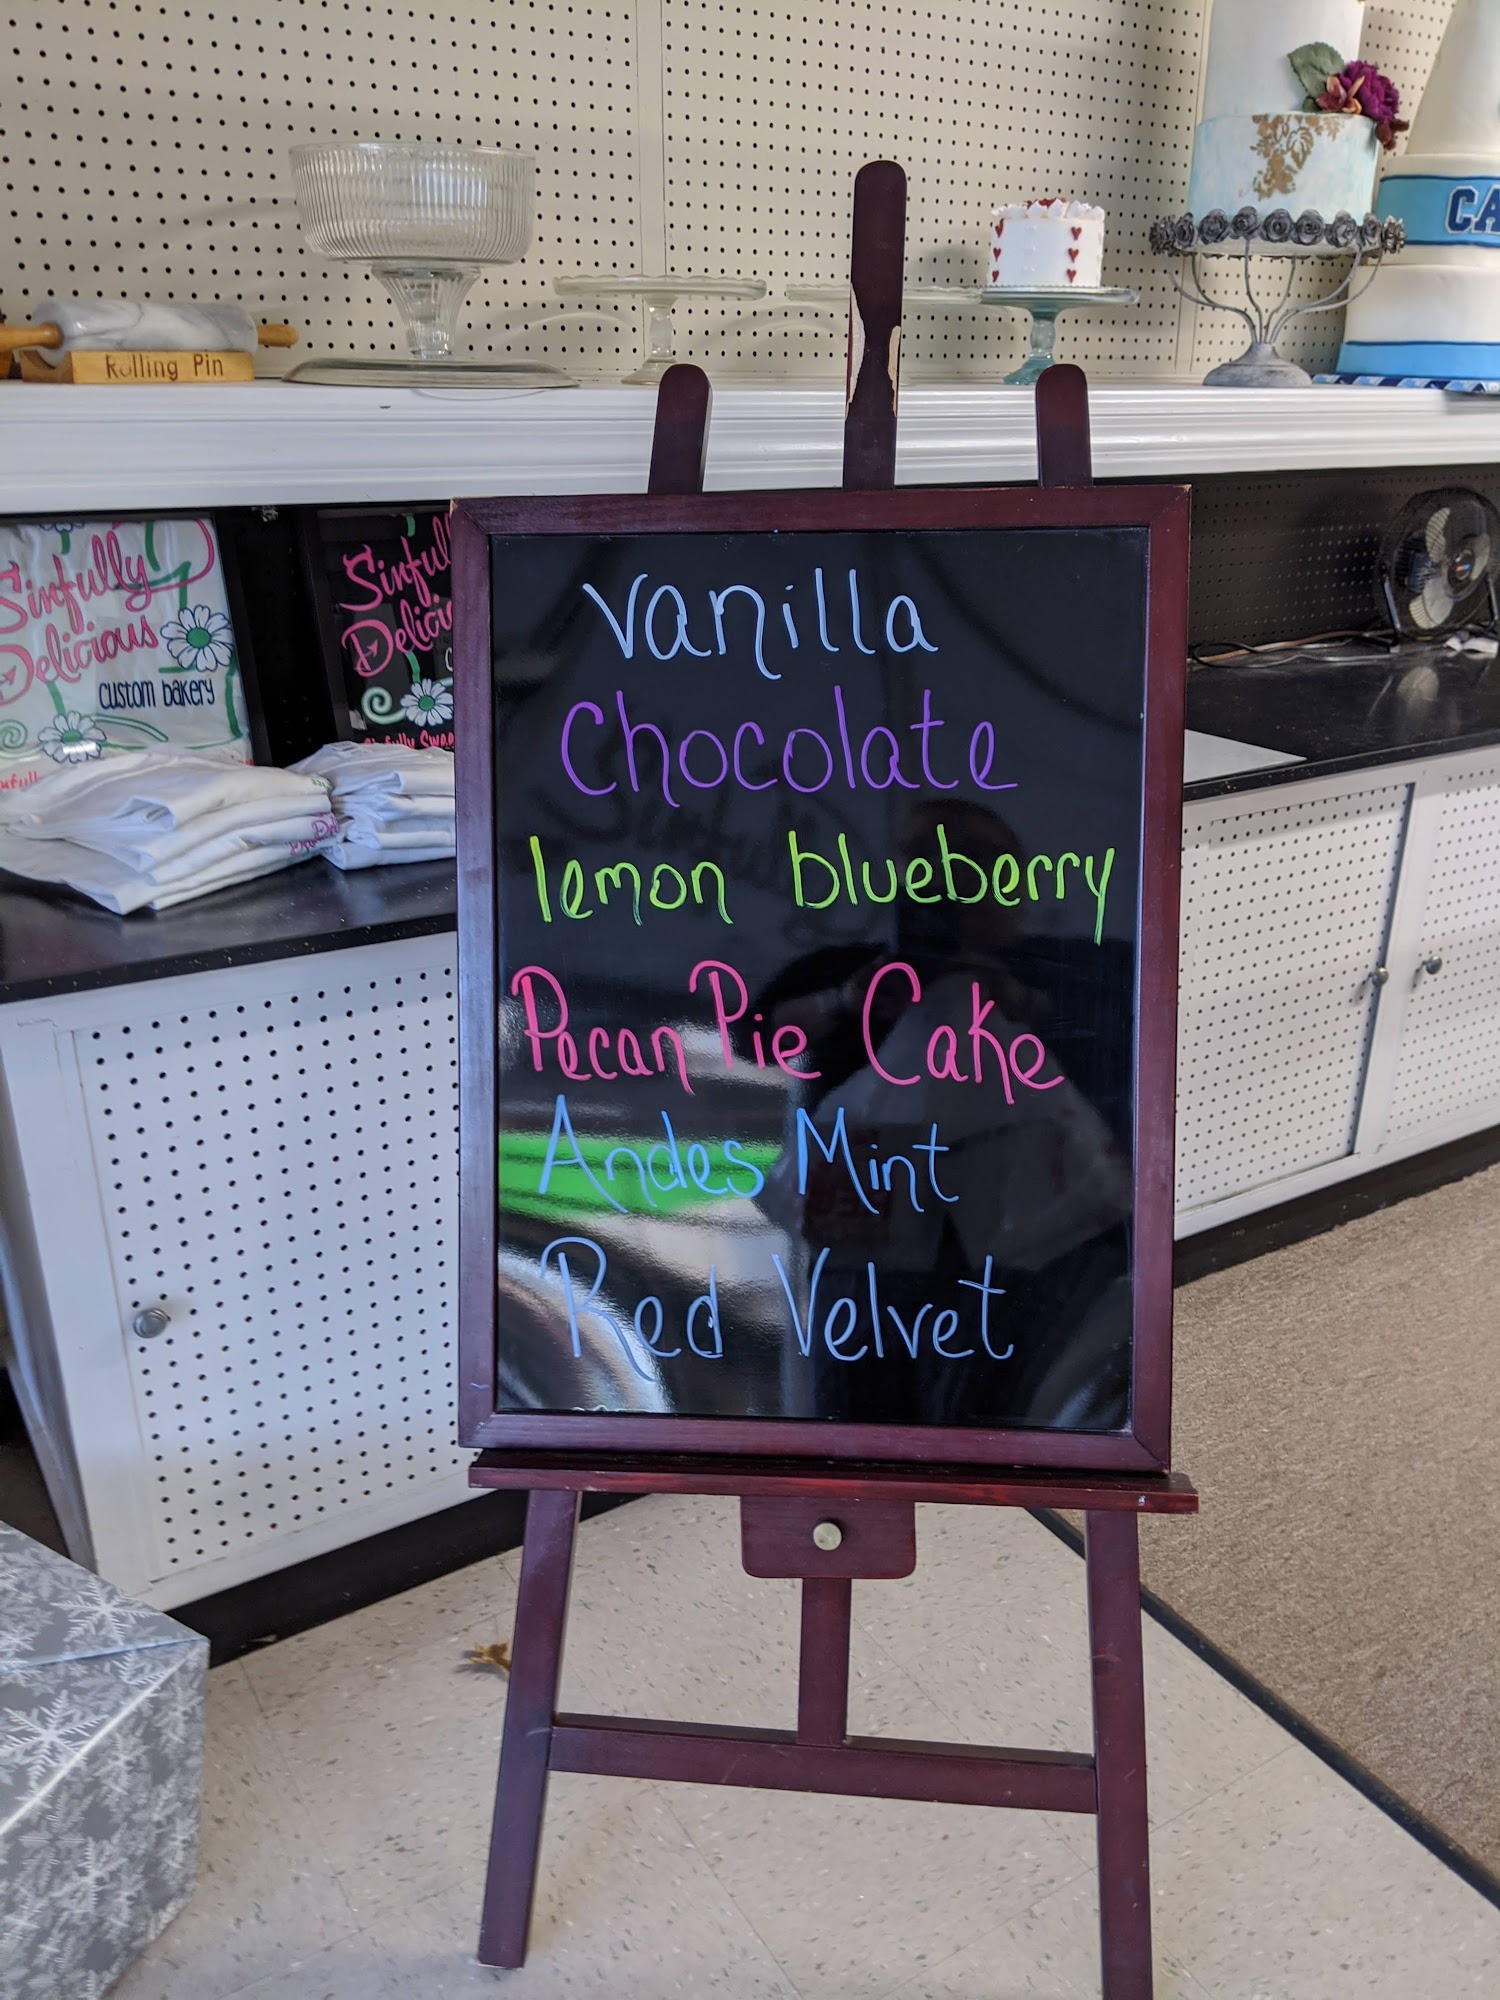 CA
Rolling Pin
Sinfully
Delicious
custom bakery
Vanilla
Chocolate
lemon blueberry
Pecan Pie Cake
Andes Mint
Red Velvet